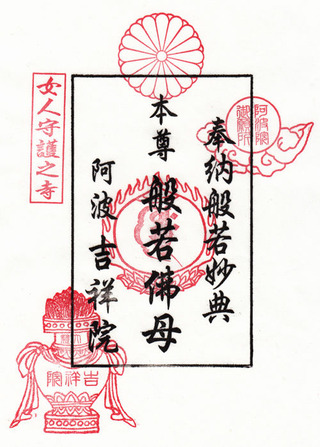 奉納般若妙典
本尊
般若佛母
阿波
吉祥院
女人守護之寺
吉祥院